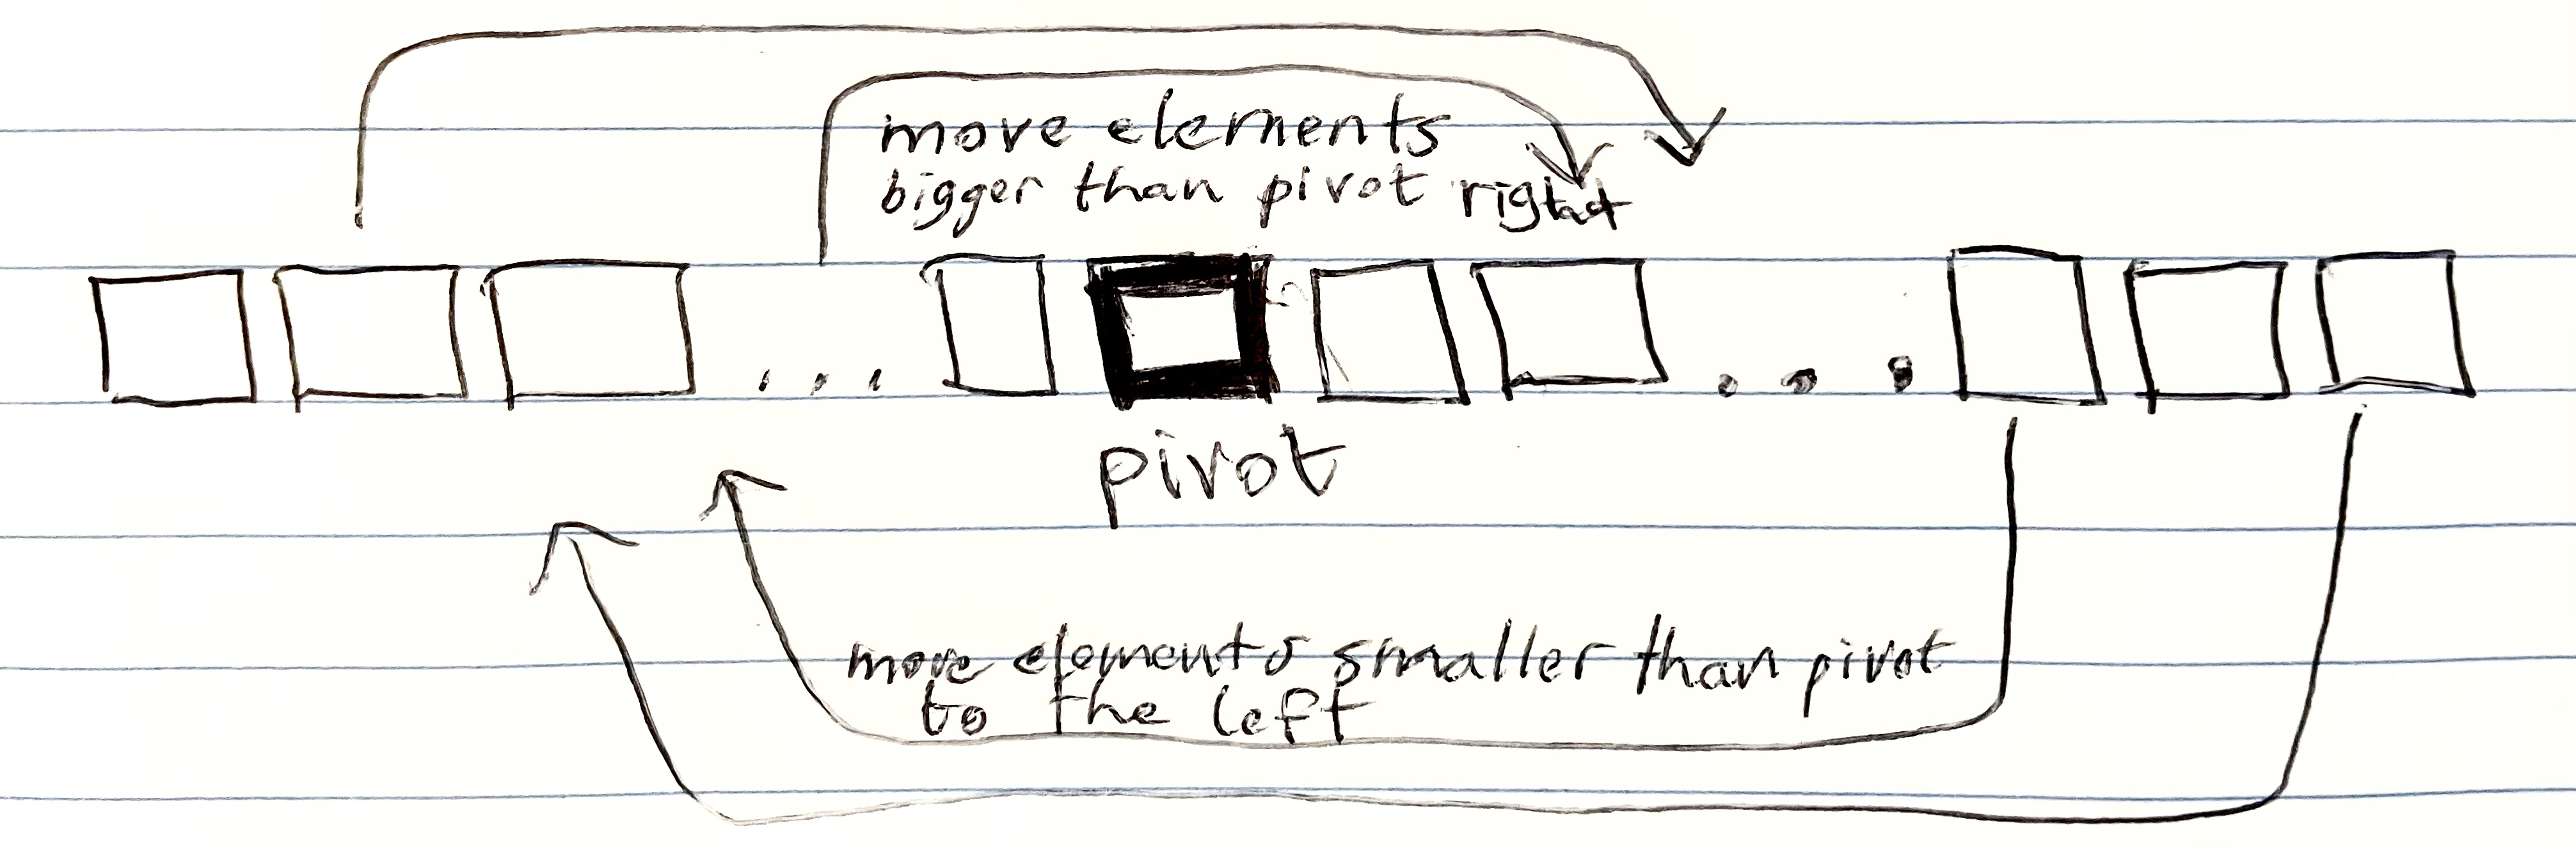 move elements
bigger than pivot right
pivot
move elements smaller than pivot
to the left